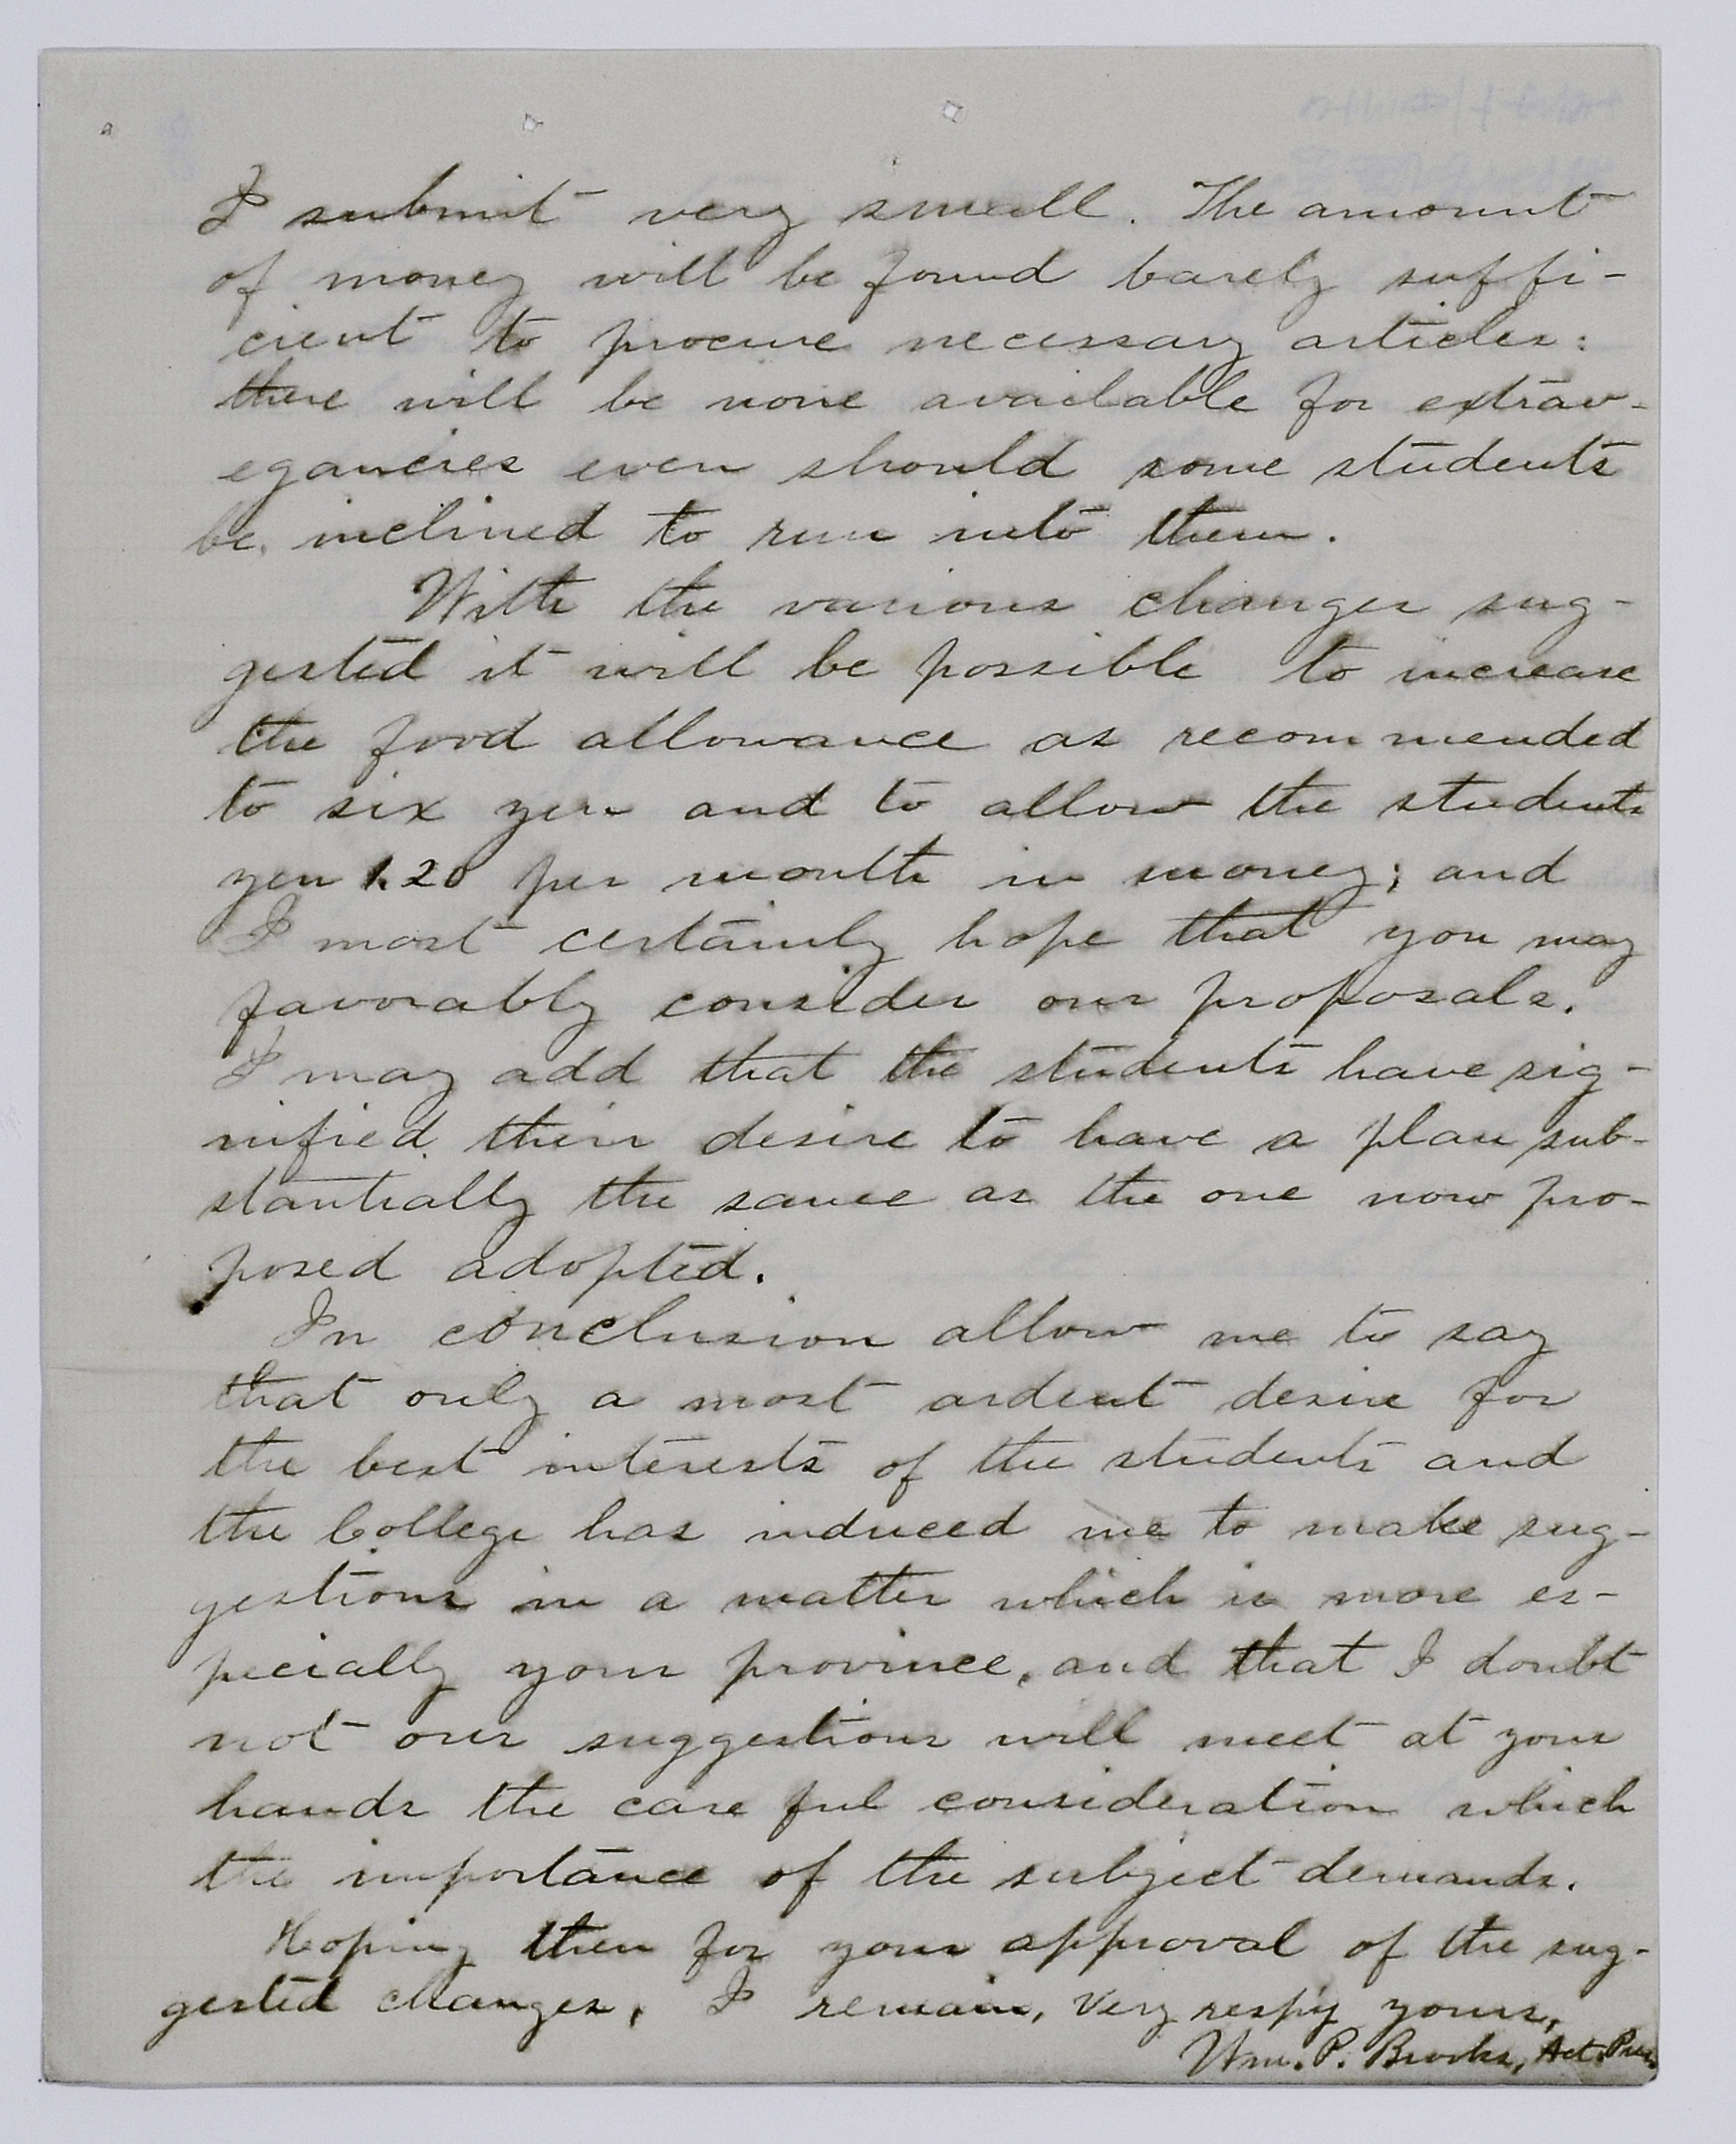 I submit very small. The amount
of money will be found barely suffi-
cient to procure necessary articles:
there will be none available for extrav-
egancies even should some students
be inclined to run into them.
With the various changes sug-
gested it will be possible to increase
the food allowance as recommended
to six yen and to allow the students
yen 1.20 per month in money; and
I most certainly hope that you may
favorably consider our proposals.
I may add that the students have sig-
nified their desire to have a plan sub-
stantially the same as the one now pro-
posed adopted.
In conclusion allow me to say
that only a most ardent desire for
the best interests of the students and
the College has induced me to make sug-
gestions in a matter which is more es-
pecially your province, and that I doubt
not our suggestions will meet at your
hands the care ful consideration which
the importance of the subject demands.
Hoping then for your approval of the sug-
gested changes, I remain, Very respy yours,
Wm. P. Brooks, Act. Pres.